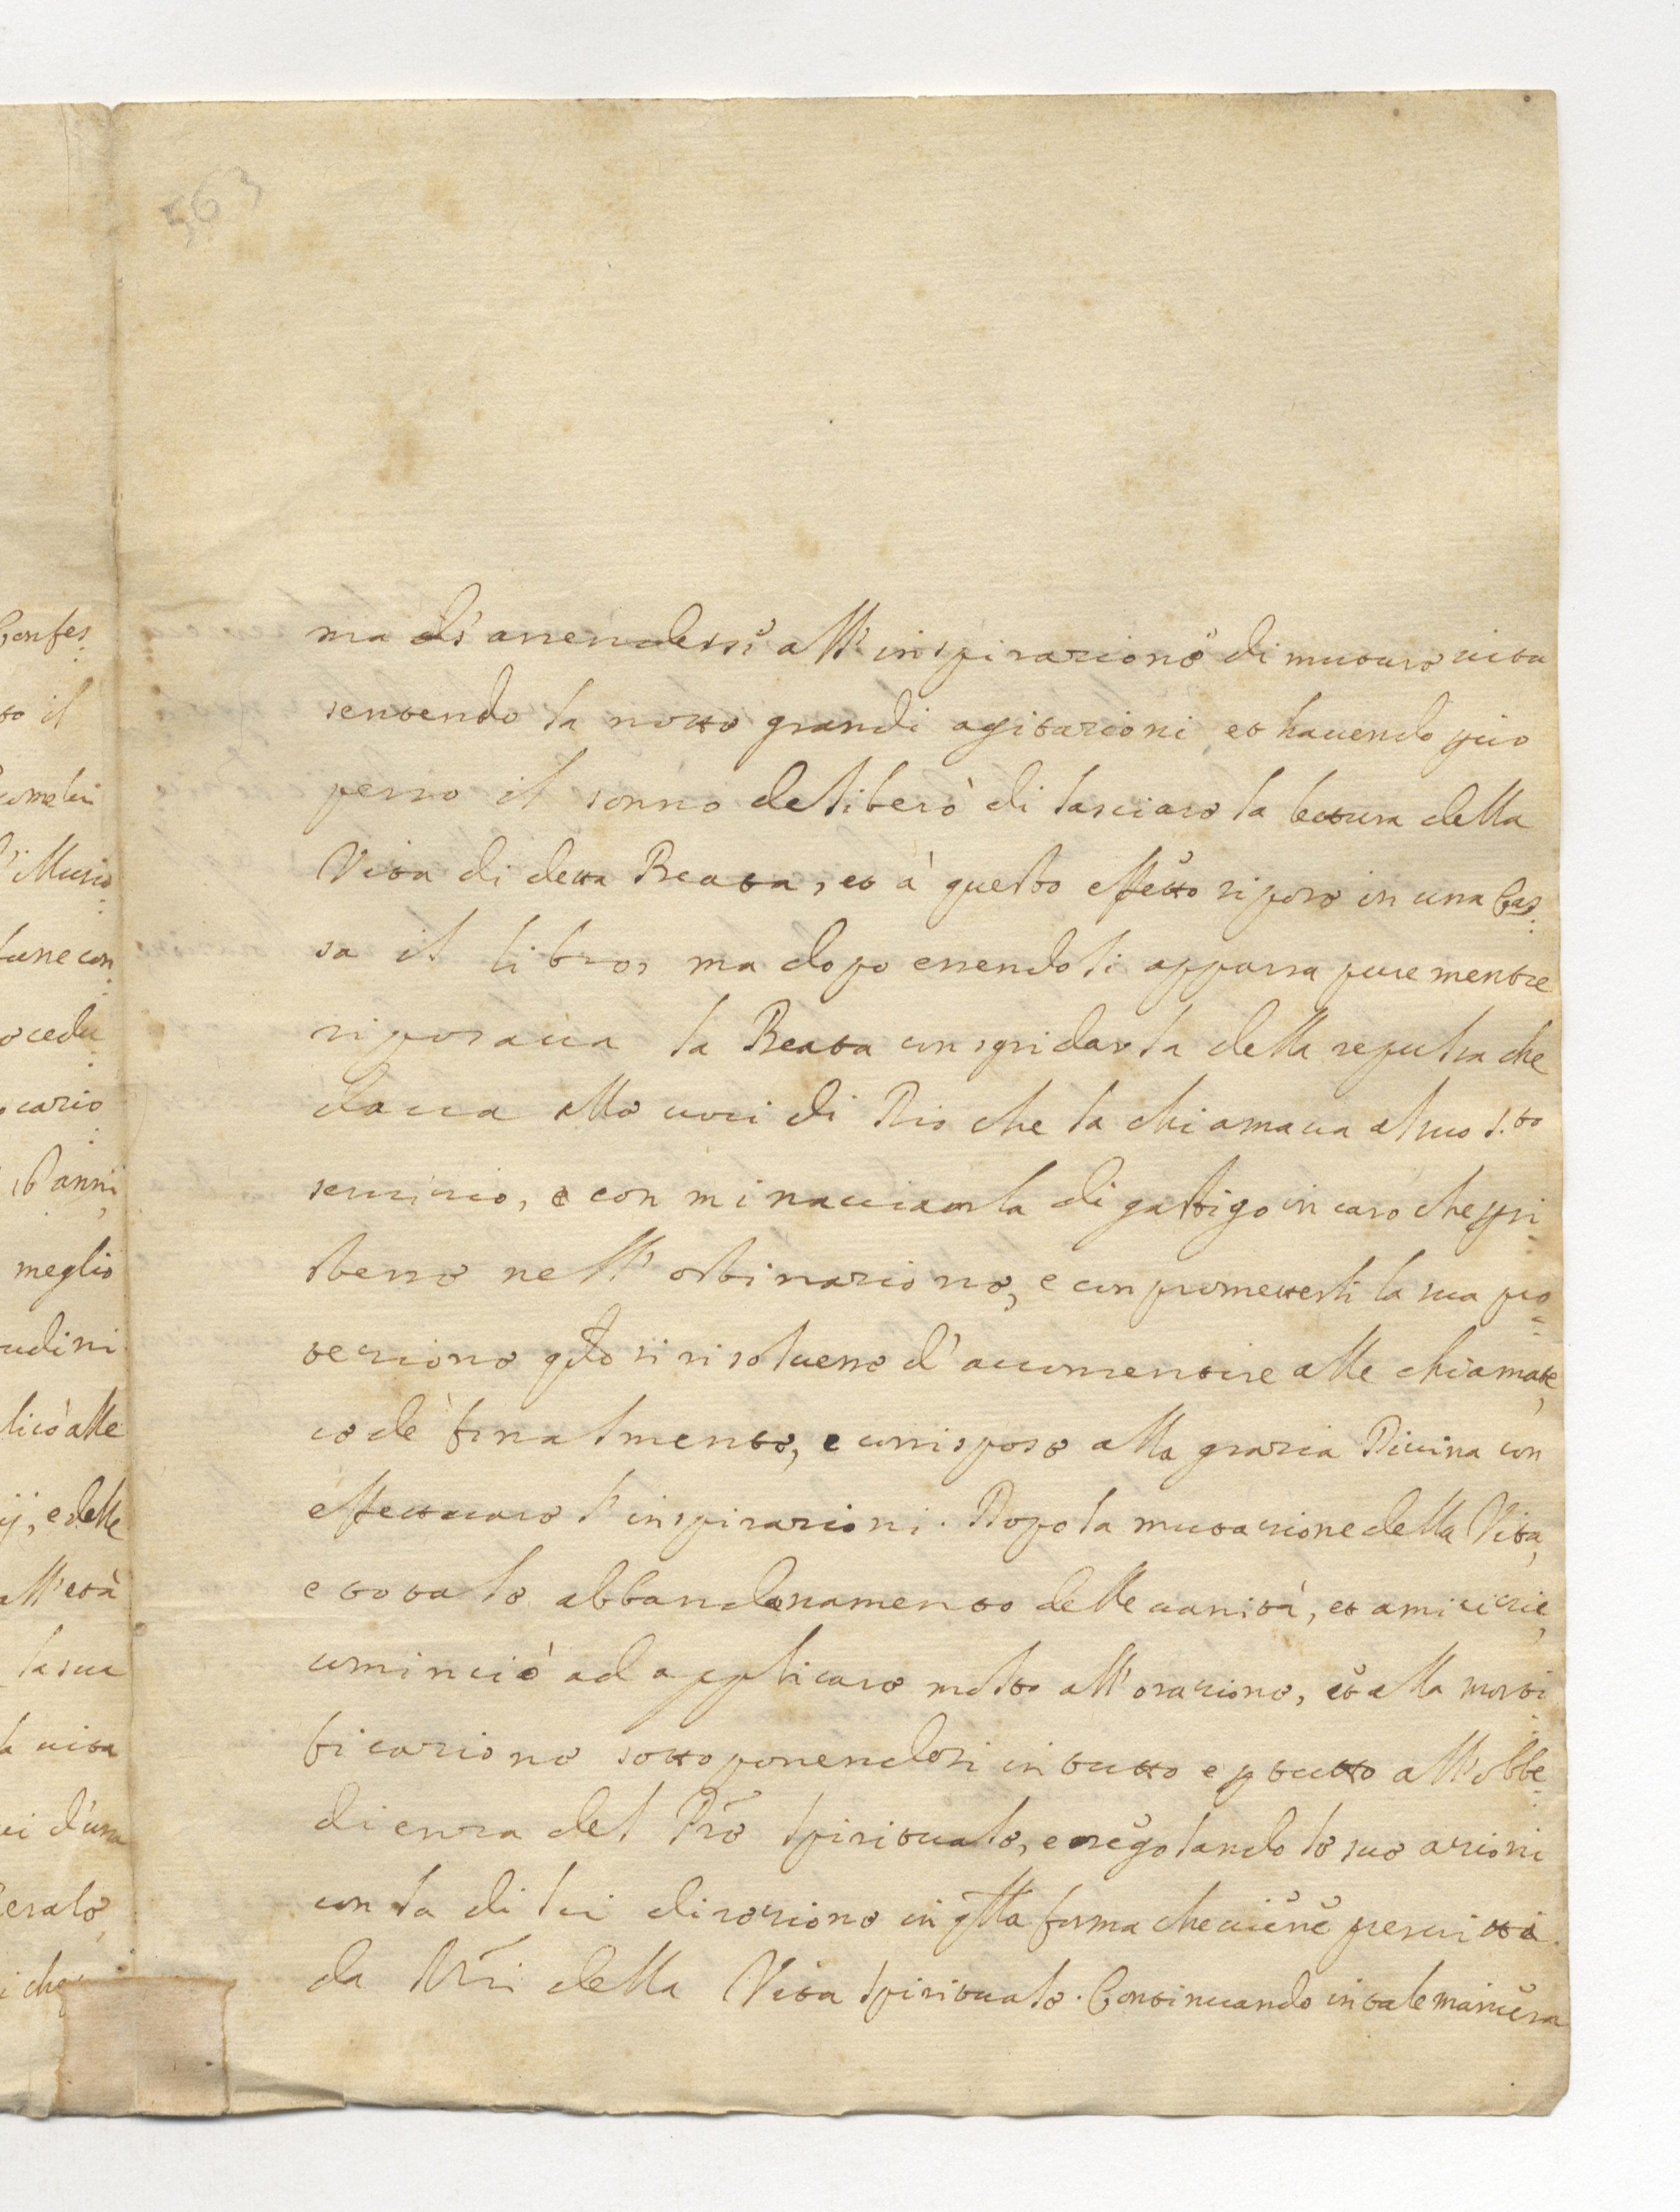 563
Confes
to il
l'Illusio
lune con
ocedu
cario
b anni
meglio
udini
licò alle
ij, e delle
all'età
la sua
la vita
ei d'una
erale
i che
ma di arrendersi all'inspirazione di mutare vita
sentendo la notte grandi agitazioni et havendo più
perso il sonno deliberò di lasciare la lettura della
Vita di detta Beata, et à questo effetto ripose in una Cas
sa il libro, ma dopo essendoli apparsa pure mentre
riposava la Beata con sgridarla della repulsa che
dava alle voci di Dio che la chiamava al suo s.to
servizio, e con minacciarla di gastigo in caso che psi
stesse nell'ostinazione, e con prometterli la sua pro
tezione qdo si risolvesse d'acconsentire alle chiamate,
cedè finalmente, e corrispose alla grazia Divina con
effettuare l'inspirazioni. Dopo la mutazione della Vita,
e totale abbandonamento delle vanità, et amicizie,
cominciò ad applicare molto all'orazione, et alla morti
ficazione sottoponendosi in tutto e p tutto all'obbe
dienza del Pre spirituale, e regolando le sue azioni
con la di lui direzione in qlla forma che viene prescritta
da Mri della Vita spirituale. Continuando in tale maniera